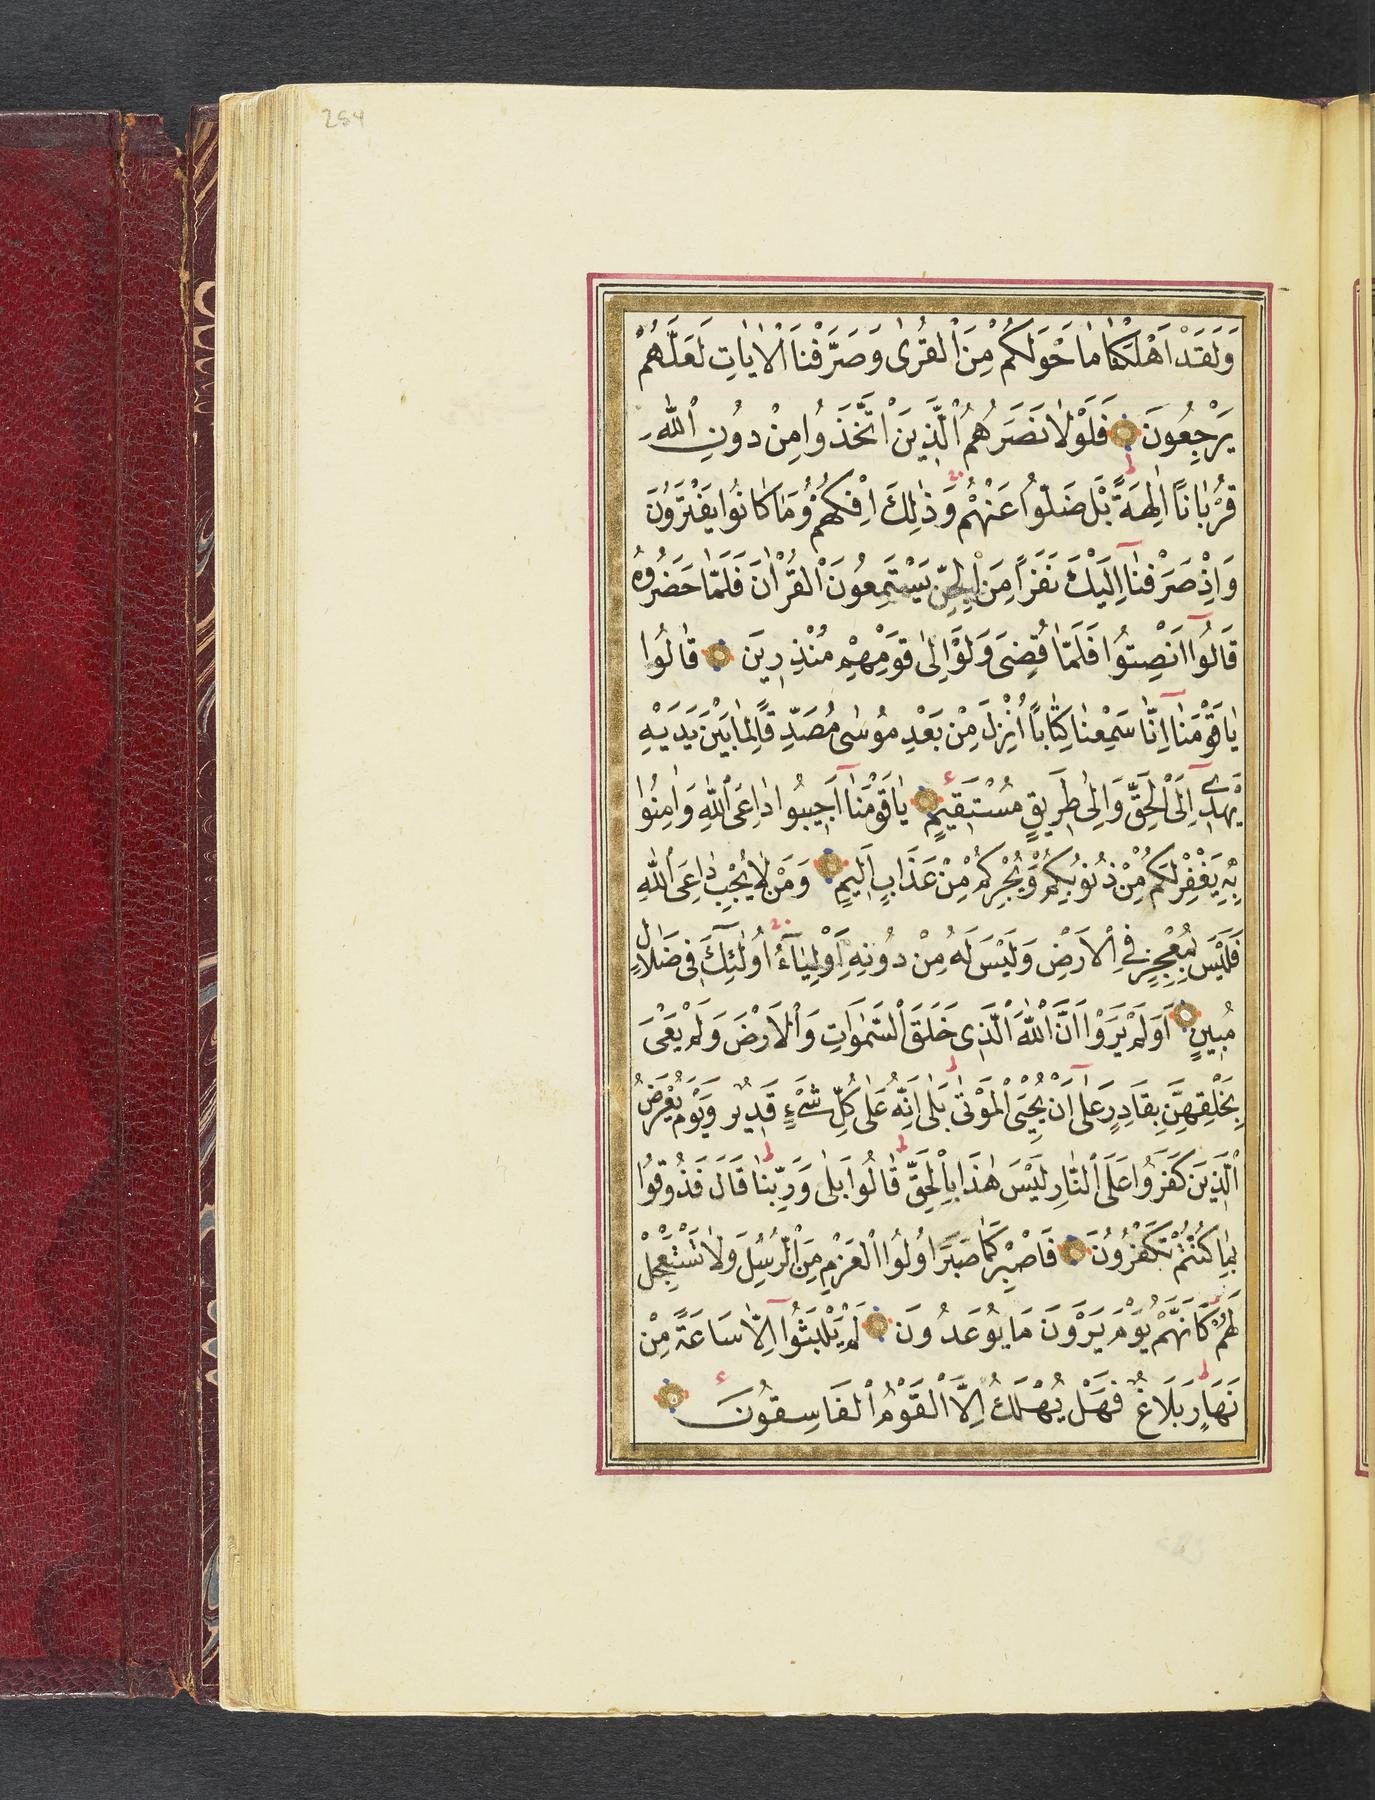 254
وَلَقَدْ اَهْلَكْنَا مَا حَوْلَكُمْ مِنَ الْقُرٰى وَصَرَّفْنَا الْاٰيَاتِ لَعَلَّهُمْ
يَرْجِعُونَ فَلَوْلَا نَصَرَهُمُ الَّذِينَ اتَّخَذُوا مِنْ دُونِ اللّٰهِ
قُرْبَانًا اٰلِهَةً بَلْ ضَلُّوا عَنْهُمْ وَذٰلِكَ اِفْكُهُمْ وَمَا كَانُوا يَفْتَرُونَ
وَاِذْ صَرَفْنَا اِلَيْكَ نَفَرًا مِنَ الْجِنِّ يَسْتَمِعُونَ الْقُرْاٰنَ فَلَمَّا حَضَرُوهُ
قَالُوا اَنْصِتُوا فَلَمَّا قُضِىَ وَلَّوْا اِلٰى قَوْمِهِمْ مُنْذِرِينَ قَالُوا
يَاقَوْمَنَا اِنَّا سَمِعْنَا كِتَابًا اُنْزِلَ مِنْ بَعْدِ مُوسٰى مُصَدِّقًا لِمَا بَيْنَ يَدَيْهِ
يَهْدِى اِلَى الْحَقِّ وَاِلٰى طَرِيقٍ مُسْتَقِيمٍ يَاقَوْمَنَا اَجِيبُوا دَاعِىَ اللّٰهِ وَاٰمِنُوا
بِهِ يَغْفِرْ لَكُمْ مِنْ ذُنُوبِكُمْ وَيُجِرْكُمْ مِنْ عَذَابٍ اَلِيمٍ وَمَنْ لَا يُجِبْ دَاعِىَ اللّٰهِ
فَلَيْسَ بِمُعْجِزٍ فِى الْاَرْضِ وَلَيْسَ لَهُ مِنْ دُونِهِ اَوْلِيَاءُ اُولٰئِكَ فِى ضَلَالٍ
مُبِينٍ اَوَلَمْ يَرَوْا اَنَّ اللّٰهَ الَّذِى خَلَقَ السَّمٰوَاتِ وَالْاَرْضَ وَلَمْ يَعْىَ
بِخَلْقِهِنَّ بِقَادِرٍ عَلٰى اَنْ يُحْيِىَ الْمَوْتٰى بَلٰى اِنَّهُ عَلٰى كُلِّ شَىْءٍ قَدِيرٌ وَيَوْمَ يُعْرَضُ
الَّذِينَ كَفَرُوا عَلَى النَّارِ لَيْسَ هٰذَا بِالْحَقِّ قَالُوا بَلٰى وَرَبِّنَا قَالَ فَذُوقُوا
بِمَا كُنْتُمْ تَكْفُرُونَ فَاصْبِرْ كَمَا صَبَرَ اُولُوا الْعَزْمِ مِنَ الرُّسُلِ وَلَا تَسْتَعْجِلْ
لَهُمْ كَاَنَّهُمْ يَوْمَ يَرَوْنَ مَا يُوعَدُونَ لَمْ يَلْبَثُوا اِلَّا سَاعَةً مِنْ
نَهَارٍ بَلَاغٌ فَهَلْ يُهْلَكُ اِلَّا الْقَوْمُ الْفَاسِقُونَ